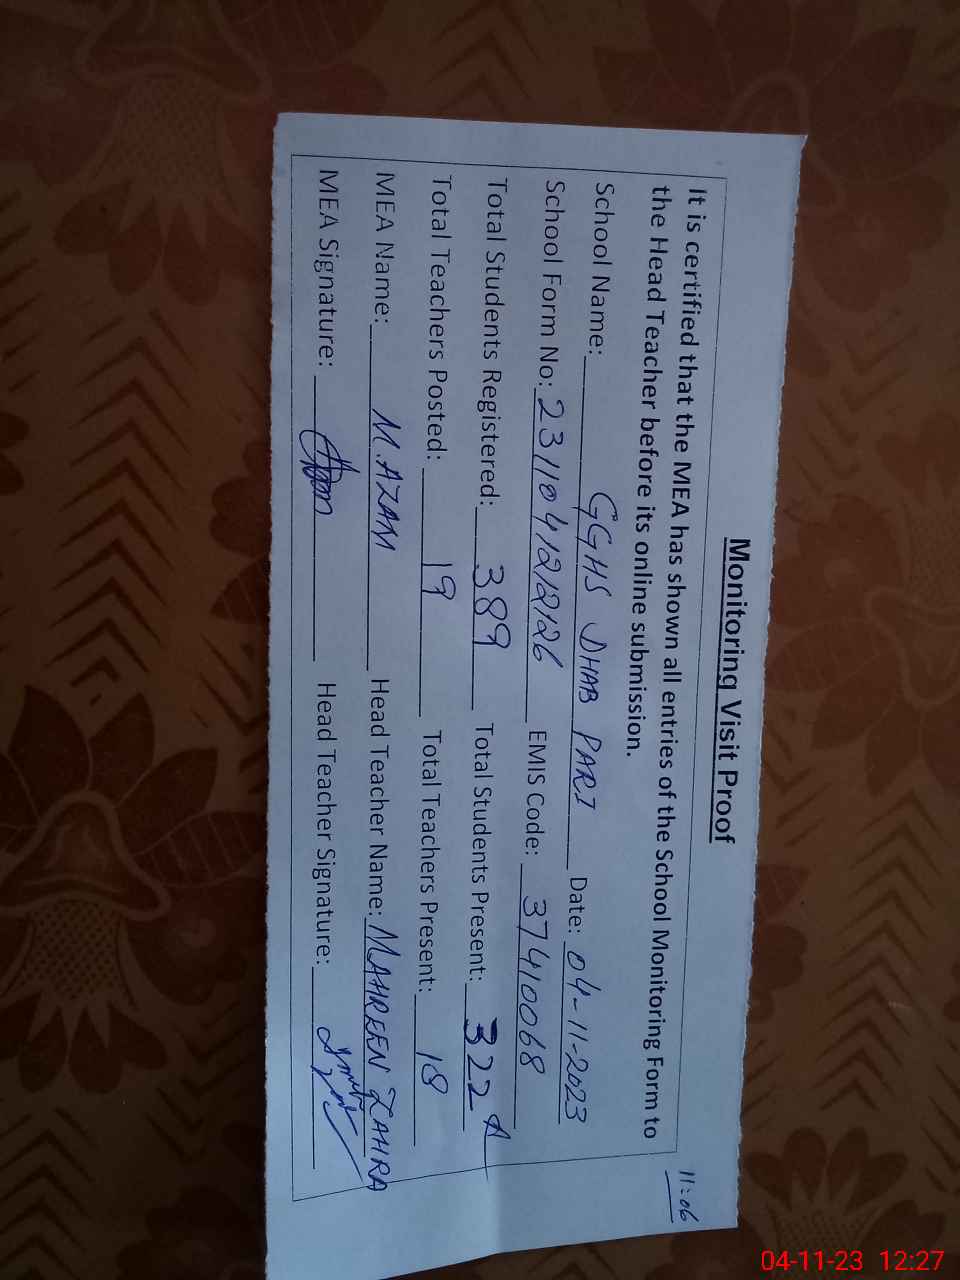 Monitoring Visit Proof
It is certified that the MEA has shown all entries of the School Monitoring Form to
the Head Teacher before its online submission.
11:06
School Name: GGHS DHAB PARI Date: 04-11-2023
School Form No: 2311041212126 EMIS Code: 37410068
Total Students Registered: 389 Total Students Present: 322
Total Teachers Posted: 19 Total Teachers Present: 18
MEA Name: M. AZAM Head Teacher Name: MAHREEN ZAHRA
MEA Signature: Head Teacher Signature:
04-11-23 12:27